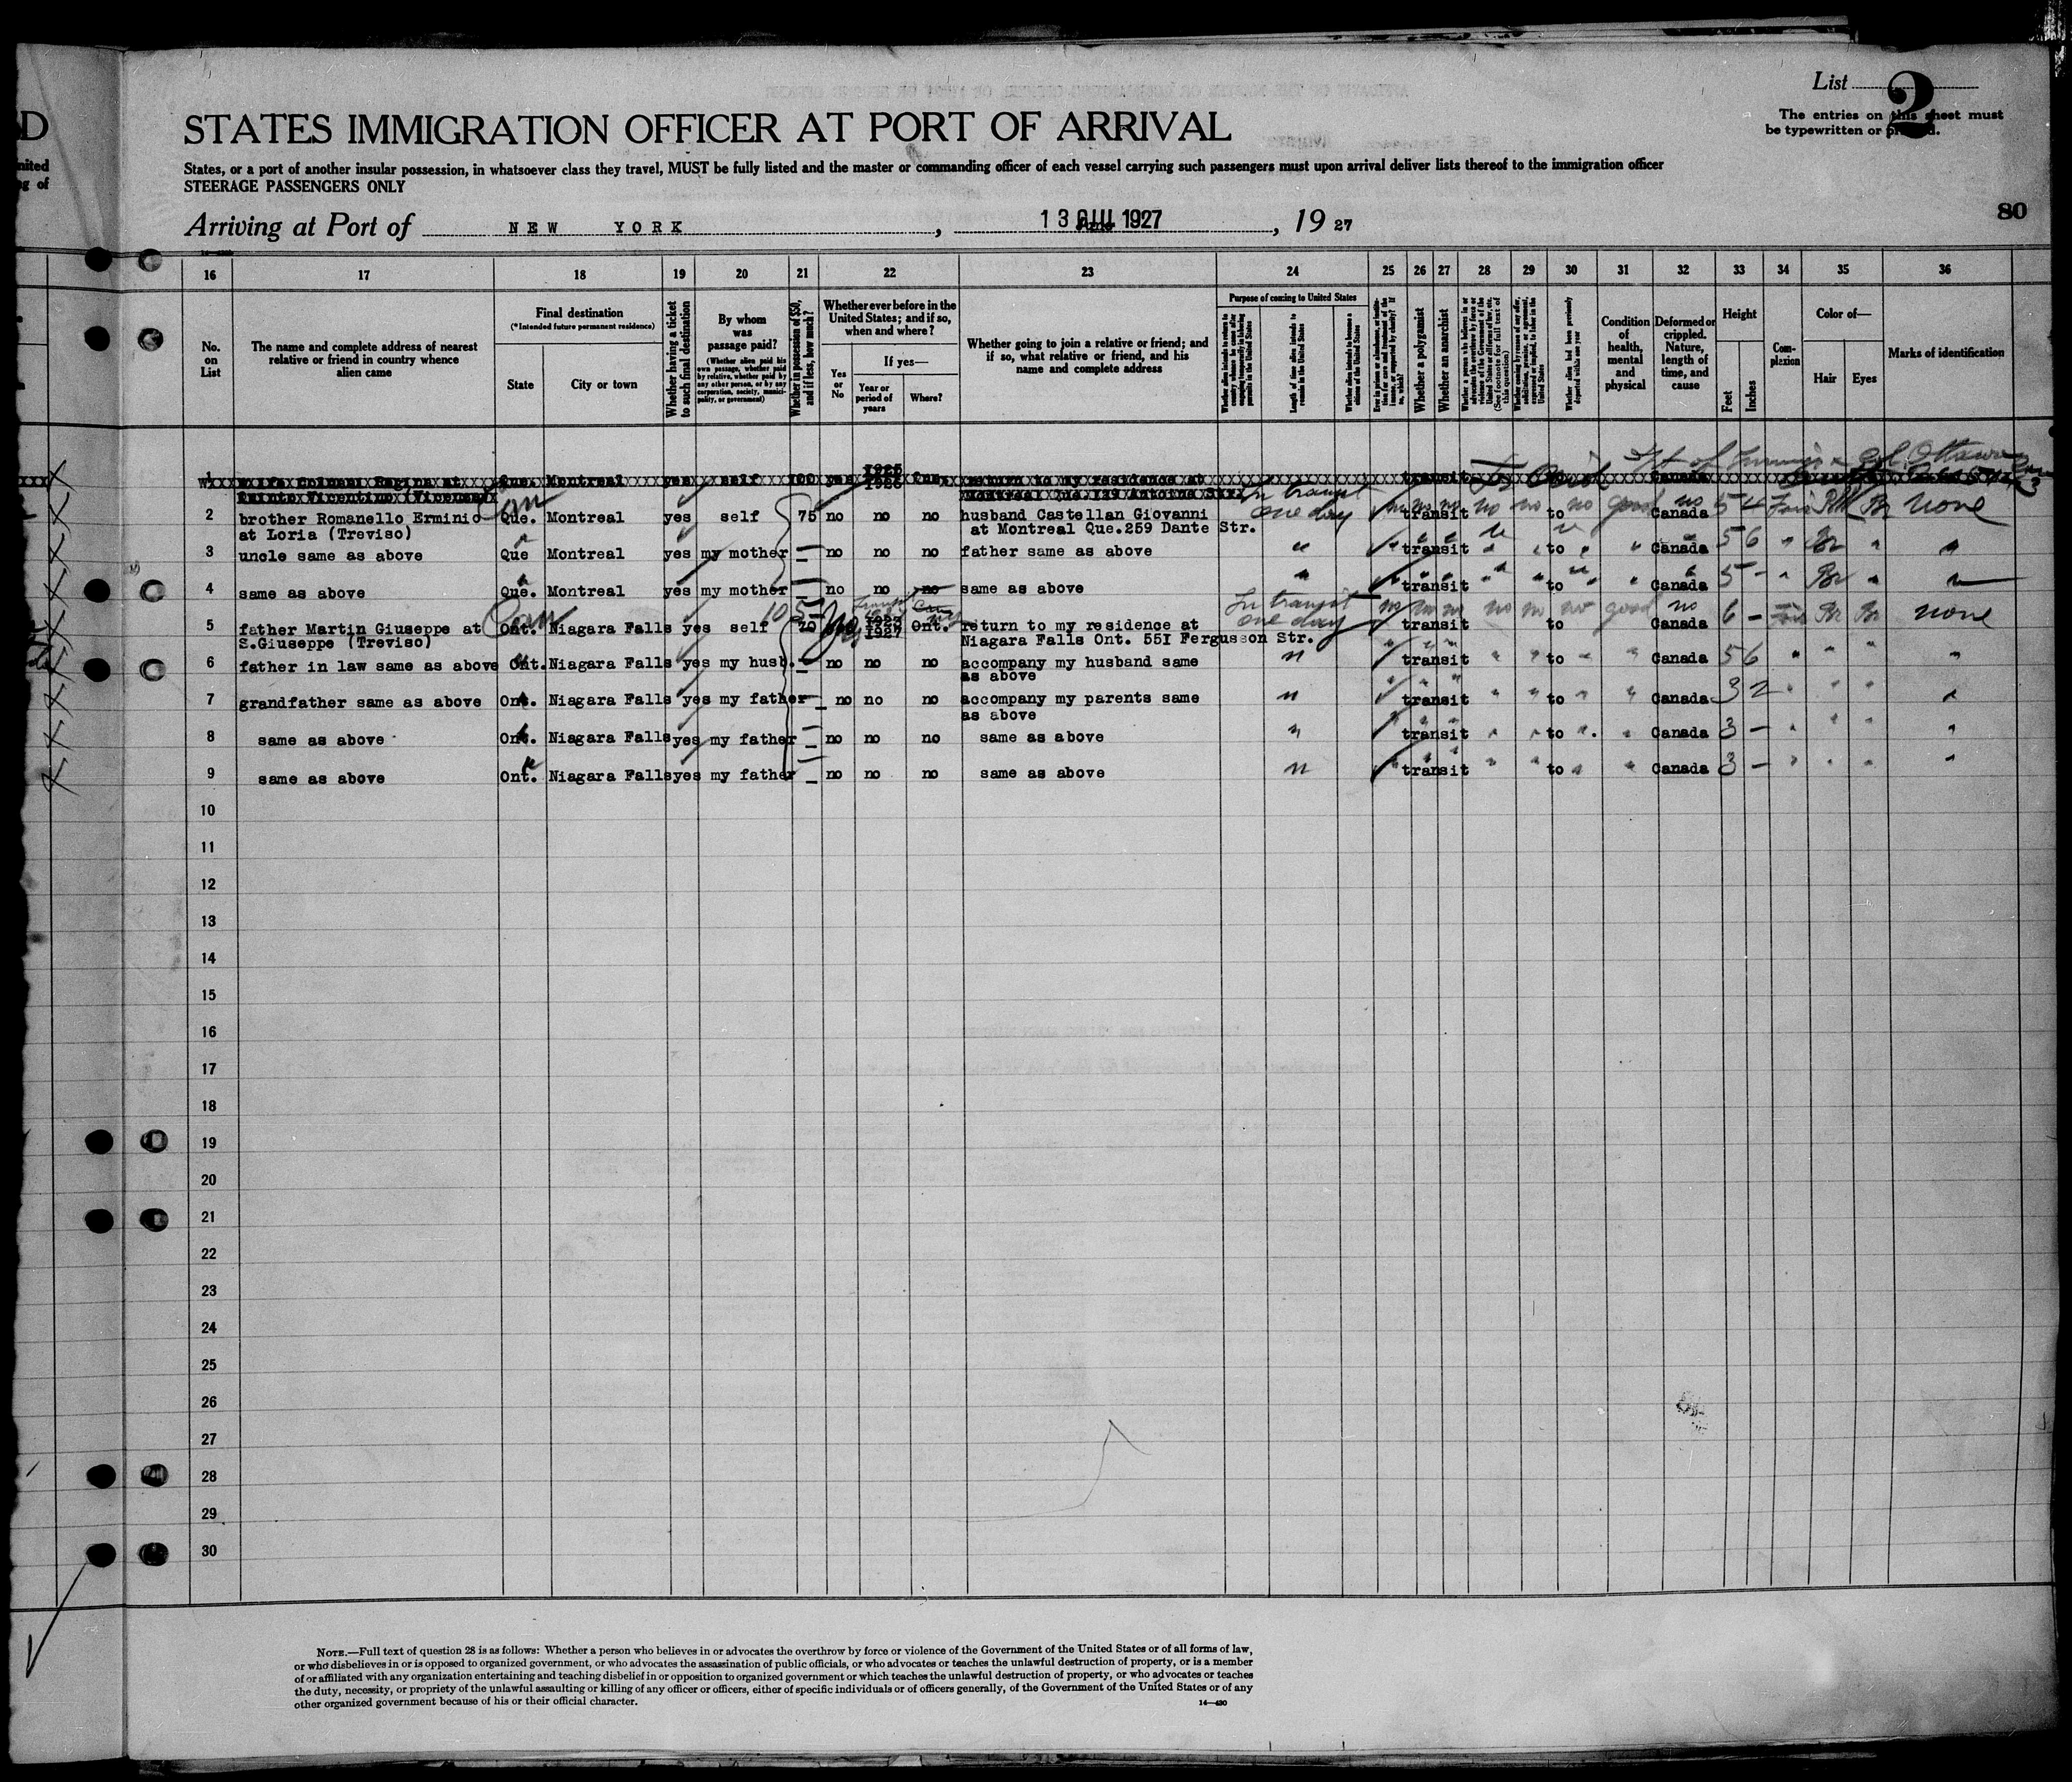 D
nited
g of
List 2
The entries on this sheet must
be typewritten or printed.
STATES IMMIGRATION OFFICER AT PORT OF ARRIVAL
States, or a port of another insular possession, in whatsoever class they travel, MUST be fully listed and the master or commanding officer of each vessel carrying such passengers must upon arrival deliver lists thereof to the immigration officer
STEERAGE PASSENGERS ONLY
80
Arriving at Port of NEW YORK, 13 GIU 1927, 1927
16 17 18 19 20 21 22 23 24 25 26 27 28 29 30 31 32 33 34 35 36
No. on List
The name and complete address of nearest relative or friend in country whence alien came
Final destination
(*Intended future permanent residence)
State
City or town
Whether having a ticket to such final destination
By whom was passage paid?
(Whether alien paid his own passage, whether paid by relative, whether paid by any other person, or by any corporation, society, municipality, or government)
Whether in possession of $50, and if less, how much?
Whether ever before in the United States; and if so, when and where?
Yes or No
If yes—
Year or period of years
Where?
Whether going to join a relative or friend; and if so, what relative or friend, and his name and complete address
Purpose of coming to United States
Length of time alien intends to remain in the United States
Whether alien intends to become a citizen of the United States
Whether a polygamist
Whether an anarchist
Whether alien had been previously deported within one year
Condition of health, mental and physical
Deformed or crippled. Nature, length of time, and cause
Height
Feet
Inches
Complexion
Color of—
Hair
Eyes
Marks of identification
1 Que. Montreal yes self 100 yes 1925 return to my residence at transit Canada
Montreal
2 brother Romanello Erminio Can Que. Montreal yes self 75 no no no husband Castellan Giovanni In transit one day no no no transit no no to no good no Canada 5 4 Br none
at Loria (Treviso) at Montreal Que. 259 Dante Str.
3 uncle same as above Que Montreal yes my mother — no no no father same as above " transit to Canada 5 6 " Br " "
4 same as above Que. Montreal yes my mother — no no no same as above " transit to Canada 5 - " Br " "
5 father Martin Giuseppe at Can Ont. Niagara Falls yes self 105 70 1927 Ont. return to my residence at In transit one day no no no transit no no to no good no Canada 6 - Br Br none
S.Giuseppe (Treviso) Niagara Falls Ont. 551 Fergusson Str.
6 father in law same as above Ont. Niagara Falls yes my husb. — no no no accompany my husband same " transit to Canada 5 6 " " " "
as above
7 grandfather same as above Ont. Niagara Falls yes my father — no no no accompany my parents same " transit to Canada 3 2 " " " "
as above
8 same as above Ont. Niagara Falls yes my father — no no no same as above " transit to Canada 3 - " " " "
9 same as above Ont. Niagara Falls yes my father — no no no same as above " transit to Canada 3 - " " " "
10
11
12
13
14
15
16
17
18
19
20
21
22
23
24
25
26
27
28
29
30
NOTE.—Full text of question 28 is as follows: Whether a person who believes in or advocates the overthrow by force or violence of the Government of the United States or of all forms of law,
or who disbelieves in or is opposed to organized government, or who advocates the assassination of public officials, or who advocates or teaches the unlawful destruction of property, or is a member
of or affiliated with any organization entertaining and teaching disbelief in or opposition to organized government or which teaches the unlawful destruction of property, or who advocates or teaches
the duty, necessity, or propriety of the unlawful assaulting or killing of any officer or officers, either of specific individuals or of officers generally, of the Government of the United States or of any
other organized government because of his or their official character.
14—430